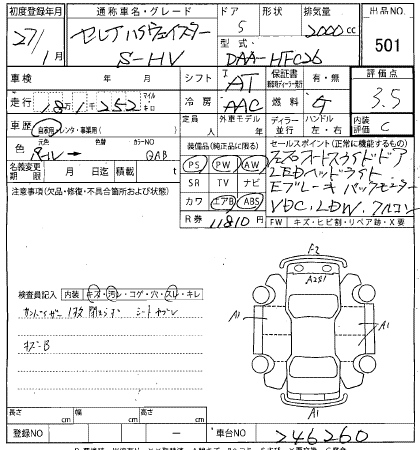 初度登録年月 通称車名・グレード ドア 形状 排気量 出品NO.
27/1月 セレナ ハイウェイスター S-HV 5 2000cc 501
型式 DAA-HFC26
車検 年 月 シフト AT 保証書 有・無 評価点 3.5
走行 18万1千252 マイル キロ 冷房 AAC 燃料 G 内装評価 C
定員 人 外車モデル 年 ディーラー 並行 ハンドル 左・右
車歴 自家用 レンタ・事業用( )
色 元色 パール 色替 カラーNO QAB
名義変更期限 月 日迄 積載 t
装備品(純正品に限る)
PS PW AW
SR TV ナビ
カワ エアB ABS
R券 11810円
セールスポイント(正常に機能するもの)
両オートスライドドア
LEDヘッドライト
Eブレーキ バックモニター
VDC、LDW、フリコン
FW キズ・ヒビ・ワリ・リペア跡・X・X要
注意事項(欠品・修復・不具合箇所および状態)
検査員記入 内装 キズ・汚レ・コゲ・穴・スレ・キレ
サンバイザー 1枚 閉まらず シートヤブレ
キズB
F2
A2S1
A1
A1
A1
長さ cm 幅 cm 高さ cm
登録NO ー 車台NO 246260